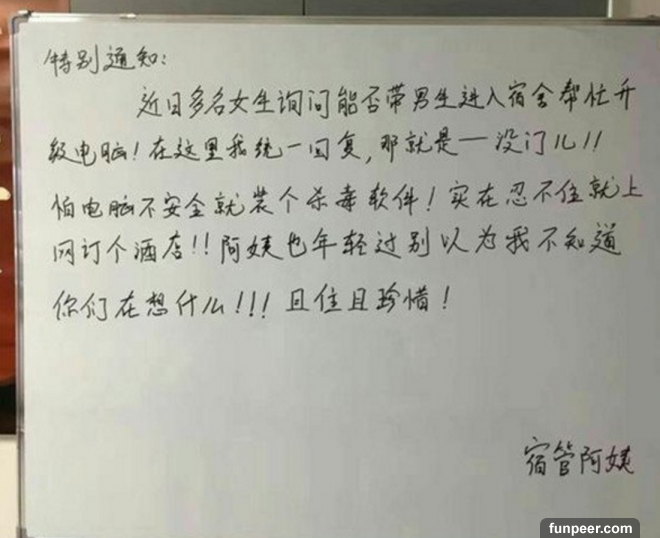 特别通知:
近日多名女生询问能否带男生进入宿舍帮忙升
级电脑!在这里我统一回复,那就是一没门儿!!
怕电脑不安全就装个杀毒软件!实在忍不住就上
网订个酒店!!阿姨也年轻过别以为我不知道
你们在想什么!!!且住且珍惜!
宿管阿姨
funpeer.com